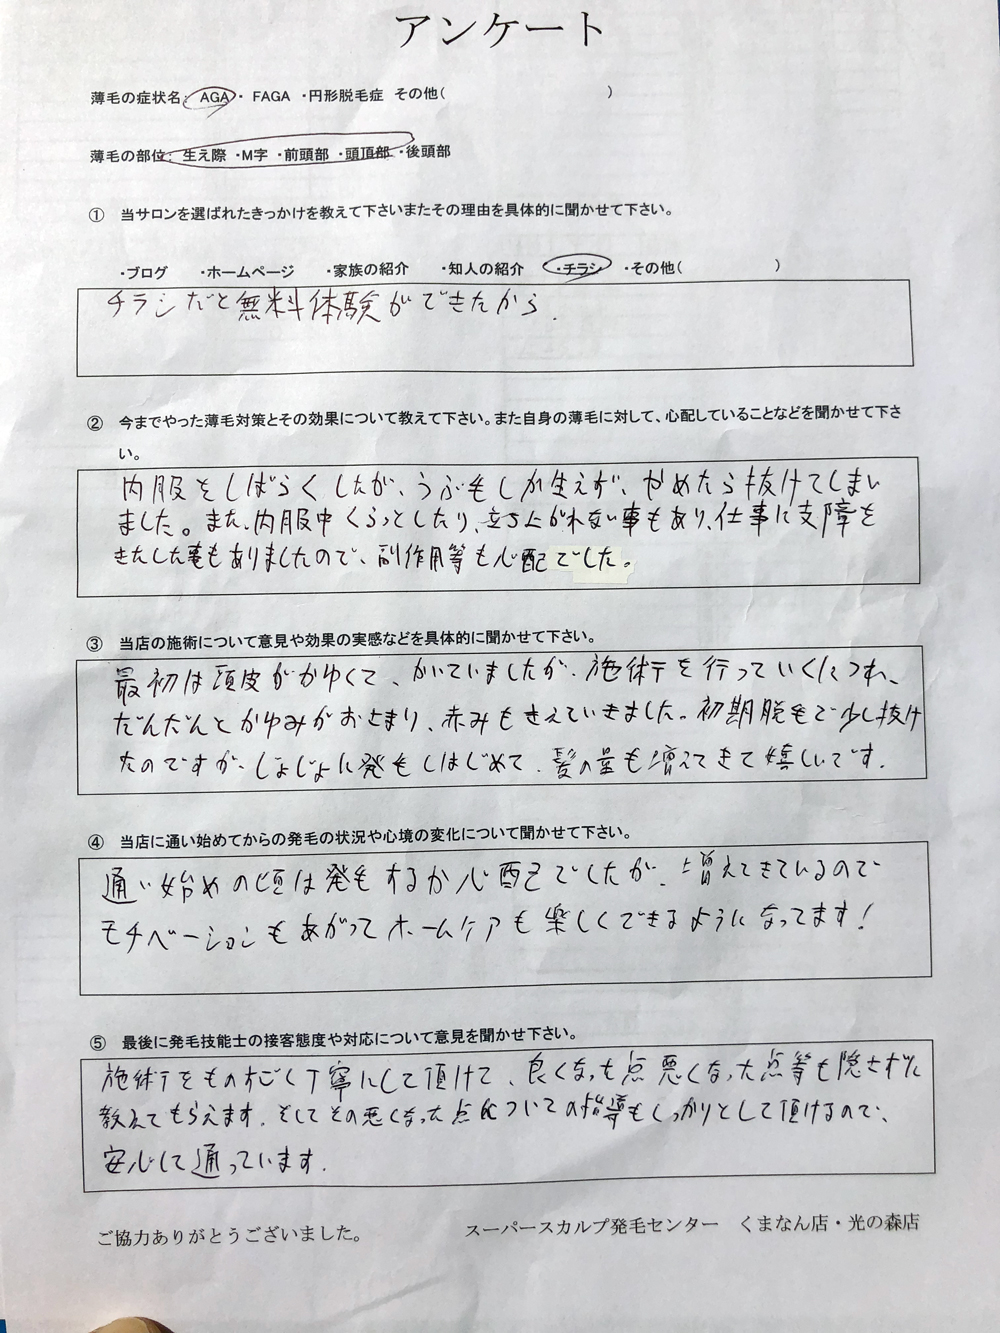 アンケート
薄毛の症状名: AGA ・ FAGA ・円形脱毛症 その他( )
薄毛の部位: 生え際 ・M字 ・前頭部 ・頭頂部 ・後頭部
① 当サロンを選ばれたきっかけを教えて下さいまたその理由を具体的に聞かせて下さい。
・ブログ ・ホームページ ・家族の紹介 ・知人の紹介 ・チラシ ・その他( )
チラシだと無料体験ができたから.
② 今までやった薄毛対策とその効果について教えて下さい。また自身の薄毛に対して、心配していることなどを聞かせて下さ
い。
内服をしばらくしたが、うぶ毛しか生えず、やめたら抜けてしまい
ました。また、内服中くらっとしたり、立ち上がれない事もあり、仕事に支障を
きたした事もありましたので、副作用等も心配でした。
③ 当店の施術について意見や効果の実感などを具体的に聞かせて下さい。
最初は頭皮がかゆくて、かいていましたが、施術を行っていくにつれ、
だんだんとかゆみがおさまり、赤みもきえていきました。初期脱毛で少し抜け
たのですが、じょじょに発毛しはじめて、髪の量も増えてきて嬉しいです.
④ 当店に通い始めてからの発毛の状況や心境の変化について聞かせて下さい。
通い始めの頃は発毛するか心配でしたが、増えてきているので
モチベーションもあがってホームケアも楽しくできるようになってます!
⑤ 最後に発毛技能士の接客態度や対応について意見を聞かせ下さい。
施術をものすごく丁寧にして頂けて、良くなった点悪くなった点等も隠さずに
教えてもらえます. そしてその悪くなった点についての指導もしっかりとして頂けるので、
安心して通っています.
ご協力ありがとうございました。 スーパースカルプ発毛センター くまなん店・光の森店